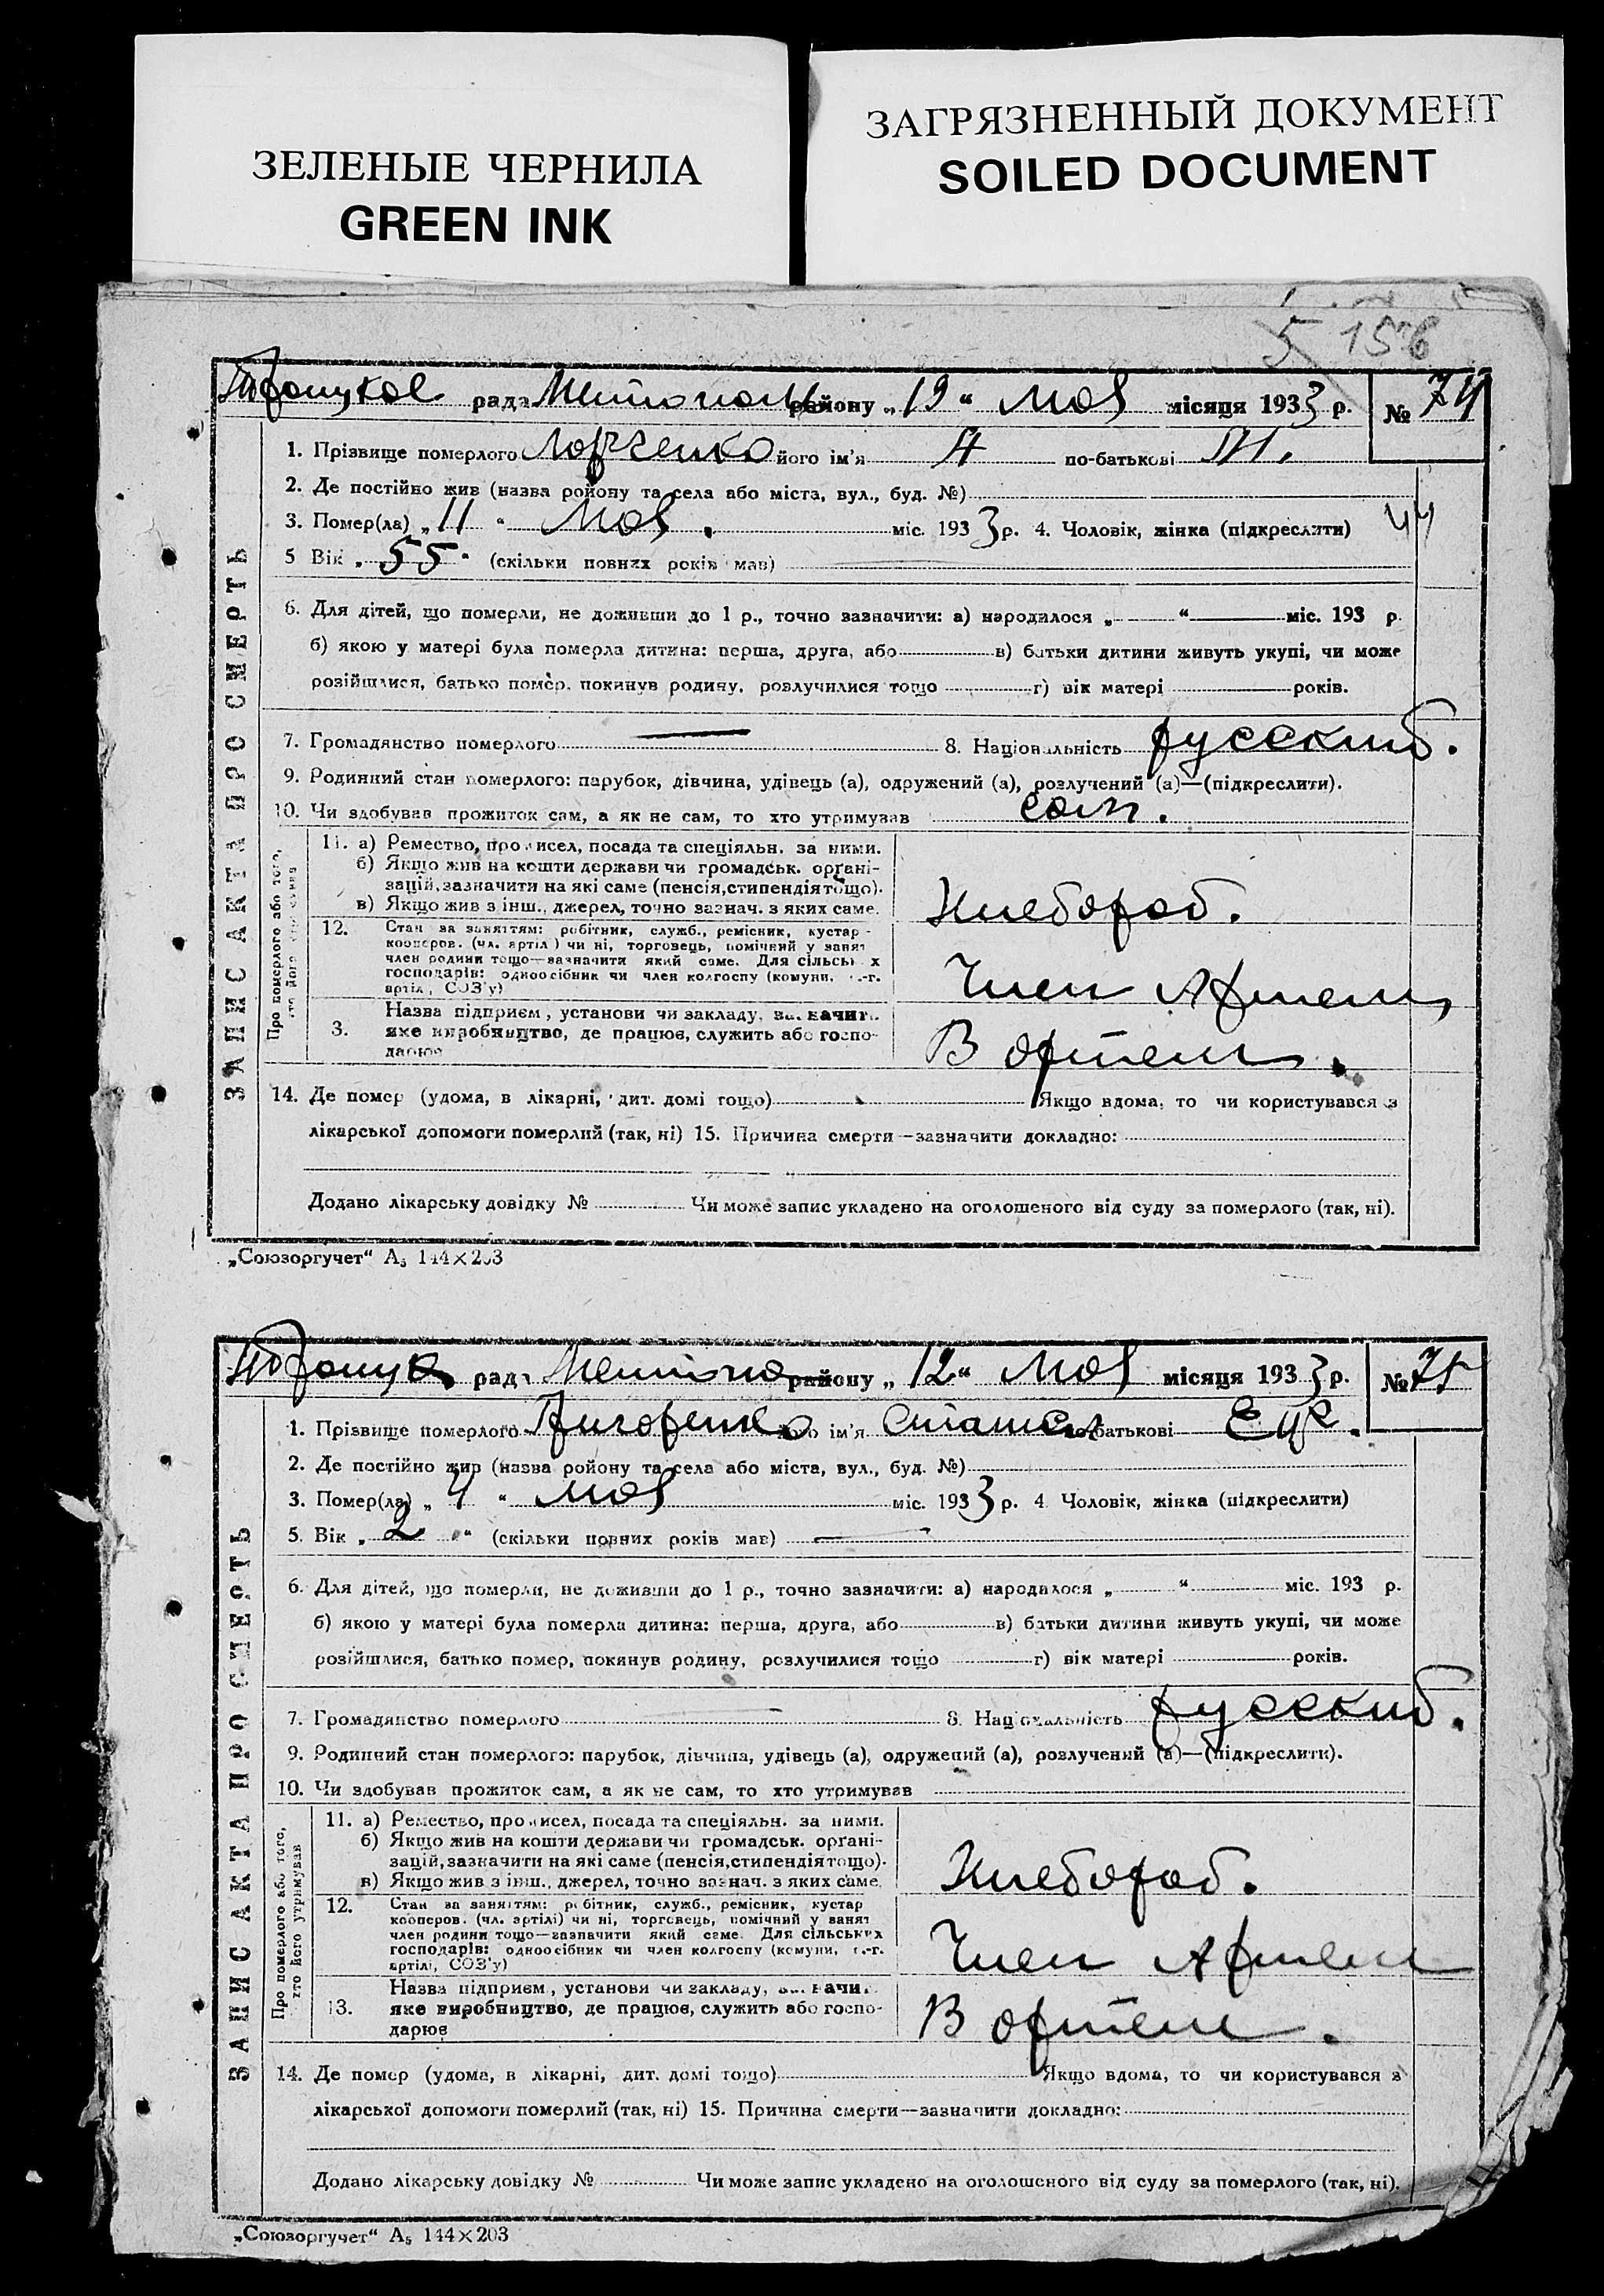 ЗЕЛЕНЫЕ ЧЕРНИЛА
GREEN INK
ЗАГРЯЗНЕННЫЙ ДОКУМЕНТ
SOILED DOCUMENT
5 156
рада району „12“ Мая місяця 1933 р. № 74
ЗАПИС АКТА ПРО СМЕРТЬ
1. Прізвище померлого його ім'я А по-батькові
2. Де постійно жив (назва ройону та села або міста, вул., буд. №)
3. Помер(ла) „11“ Мая. міс. 1933 р. 4. Чоловік, жінка (підкреслити)
5 Вік „55“ (скільки повних років мав)
6. Для дітей, що померли, не доживши до 1 р., точно зазначити: а) народилося „ “ міс. 193 р.
б) якою у матері була померла дитина: перша, друга, або в) батьки дитини живуть укупі, чи може
розійшлися, батько помер, покинув родину, розлучилися тощо г) вік матері років.
7. Громадянство померлого — 8. Національність русский.
9. Родинний стан померлого: парубок, дівчина, удівець (а), одружений (а), розлучений (а)—(підкреслити).
10. Чи здобував прожиток сам, а як не сам, то хто утримував сам.
Про померлого або того, хто його утримував
11. а) Ремество, промисел, посада та спеціяльн. за ними.
б) Якщо жив на кошти держави чи громадськ. організацій, зазначити на які саме (пенсія, стипендія тощо).
в) Якщо жив з інш., джерел, точно зазнач. з яких саме.
Хлебороб.
12. Стан за заняттям: робітник, служб., ремісник, кустар-
кооперов. (чл. артіл) чи ні, торговець, помічний у занят
член родини тощо—зазначити який саме. Для сільських
господарів: одноосібник чи член колгоспу (комуни, с.-г.
артіл, СОЗ'у)
Член Артели
Назва підприєм, установи чи закладу,
3. яке виробництво, де працює, служить або госпо-
дарює
В артели.
14. Де помер (удома, в лікарні, дит. домі тощо) Якщо вдома, то чи користувався з
лікарської допомоги померлий (так, ні) 15. Причина смерти—зазначити докладно:
Додано лікарську довідку № Чи може запис укладено на оголошеного від суду за померлого (так, ні).
„Союзоргучет“ А₅ 144×203
рада району „12“ Мая місяця 1933 р. № 75
ЗАПИС АКТА ПРО СМЕРТЬ
1. Прізвище померлого його ім'я по-батькові
2. Де постійно жив (назва ройону та села або міста, вул., буд. №)
3. Помер(ла) „4“ Мая міс. 1933 р. 4 Чоловік, жінка (підкреслити)
5. Вік „2“ (скільки повних років мав)
6. Для дітей, що померли, не доживши до 1 р., точно зазначити: а) народилося „ “ міс. 193 р.
б) якою у матері була померла дитина: перша, друга, або в) батьки дитини живуть укупі, чи може
розійшлися, батько помер, покинув родину, розлучилися тощо г) вік матері років.
7. Громадянство померлого 8. Національність русский.
9. Родинний стан померлого: парубок, дівчина, удівець (а), одружений (а), розлучений (а)—(підкреслити).
10. Чи здобував прожиток сам, а як не сам, то хто утримував
Про померлого або того, хто його утримував
11. а) Ремество, промисел, посада та спеціяльн. за ними.
б) Якщо жив на кошти держави чи громадськ. організацій, зазначити на які саме (пенсія, стипендія тощо).
в) Якщо жив з інш., джерел, точно зазнач. з яких саме.
Хлебороб.
12. Стан за заняттям: робітник, служб., ремісник, кустар
кооперов. (чл. артілі) чи ні, торговець, помічний у занят
член родини тощо—зазначити який саме. Для сільських
господарів: одноосібник чи член колгоспу (комуни, с.-г.
артілі, СОЗ'у)
Член Артели
Назва підприєм, установи чи закладу,
13. яке виробництво, де працює, служить або госпо-
дарює
В артели.
14. Де помер (удома, в лікарні, дит. домі тощо) Якщо вдома, то чи користувався з
лікарської допомоги померлий (так, ні) 15. Причина смерти—зазначити докладно:
Додано лікарську довідку № Чи може запис укладено на оголошеного від суду за померлого (так, ні).
„Союзоргучет“ А₅ 144×203